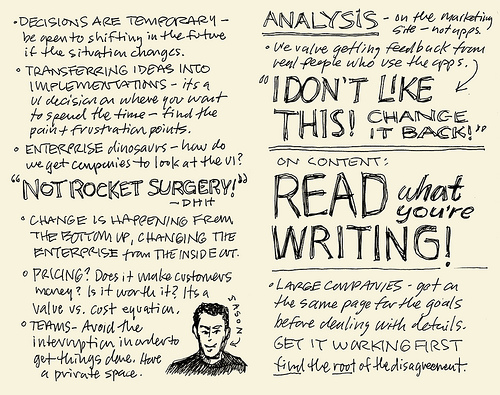 • DECISIONS ARE TEMPORARY –
be open to shifting in the future
if the situation changes.
• TRANSFERRING IDEAS INTO
IMPLEMENTATIONS – its a
UI decision on where you want
to spend the time – find the
pain + frustration points.
• ENTERPRISE dinosaurs – how do
we get companies to look at the UI?
"NOT ROCKET SURGERY!"
~DHH
• CHANGE IS HAPPENING FROM
THE BOTTOM UP, CHANGING THE
ENTERPRISE from THE INSIDE OUT.
• PRICING? Does it make customers
money? Is it worth it? Its a
value vs. cost equation.
• TEAMS – Avoid the
interruption in order to
get things done. Have
a private space.
JASON
ANALYSIS – on the marketing
site – not apps.
• We value getting feedback from
real people who use the apps.
"I DON'T LIKE
THIS! CHANGE
IT BACK!"
ON CONTENT:
READ what
you're
WRITING!
• LARGE COMPANIES – get on
the same page for the goals
before dealing with details.
GET IT WORKING FIRST
find the root of the disagreement.